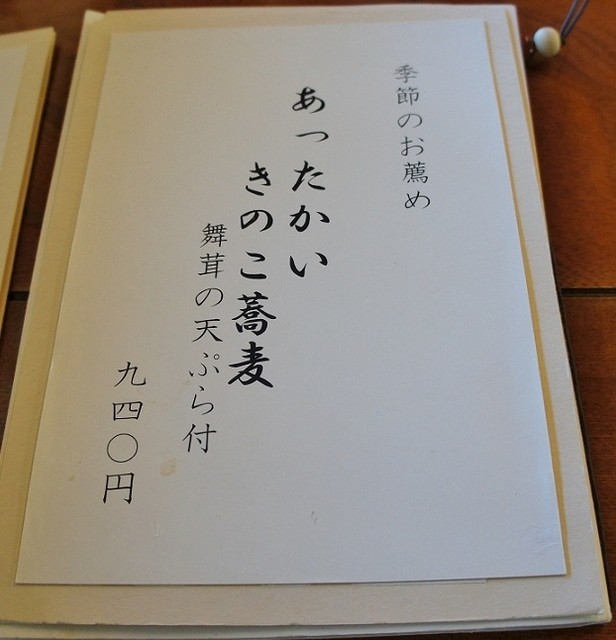 季節のお薦め
あったかい
きのこ蕎麦
舞茸の天ぷら付
九四〇円